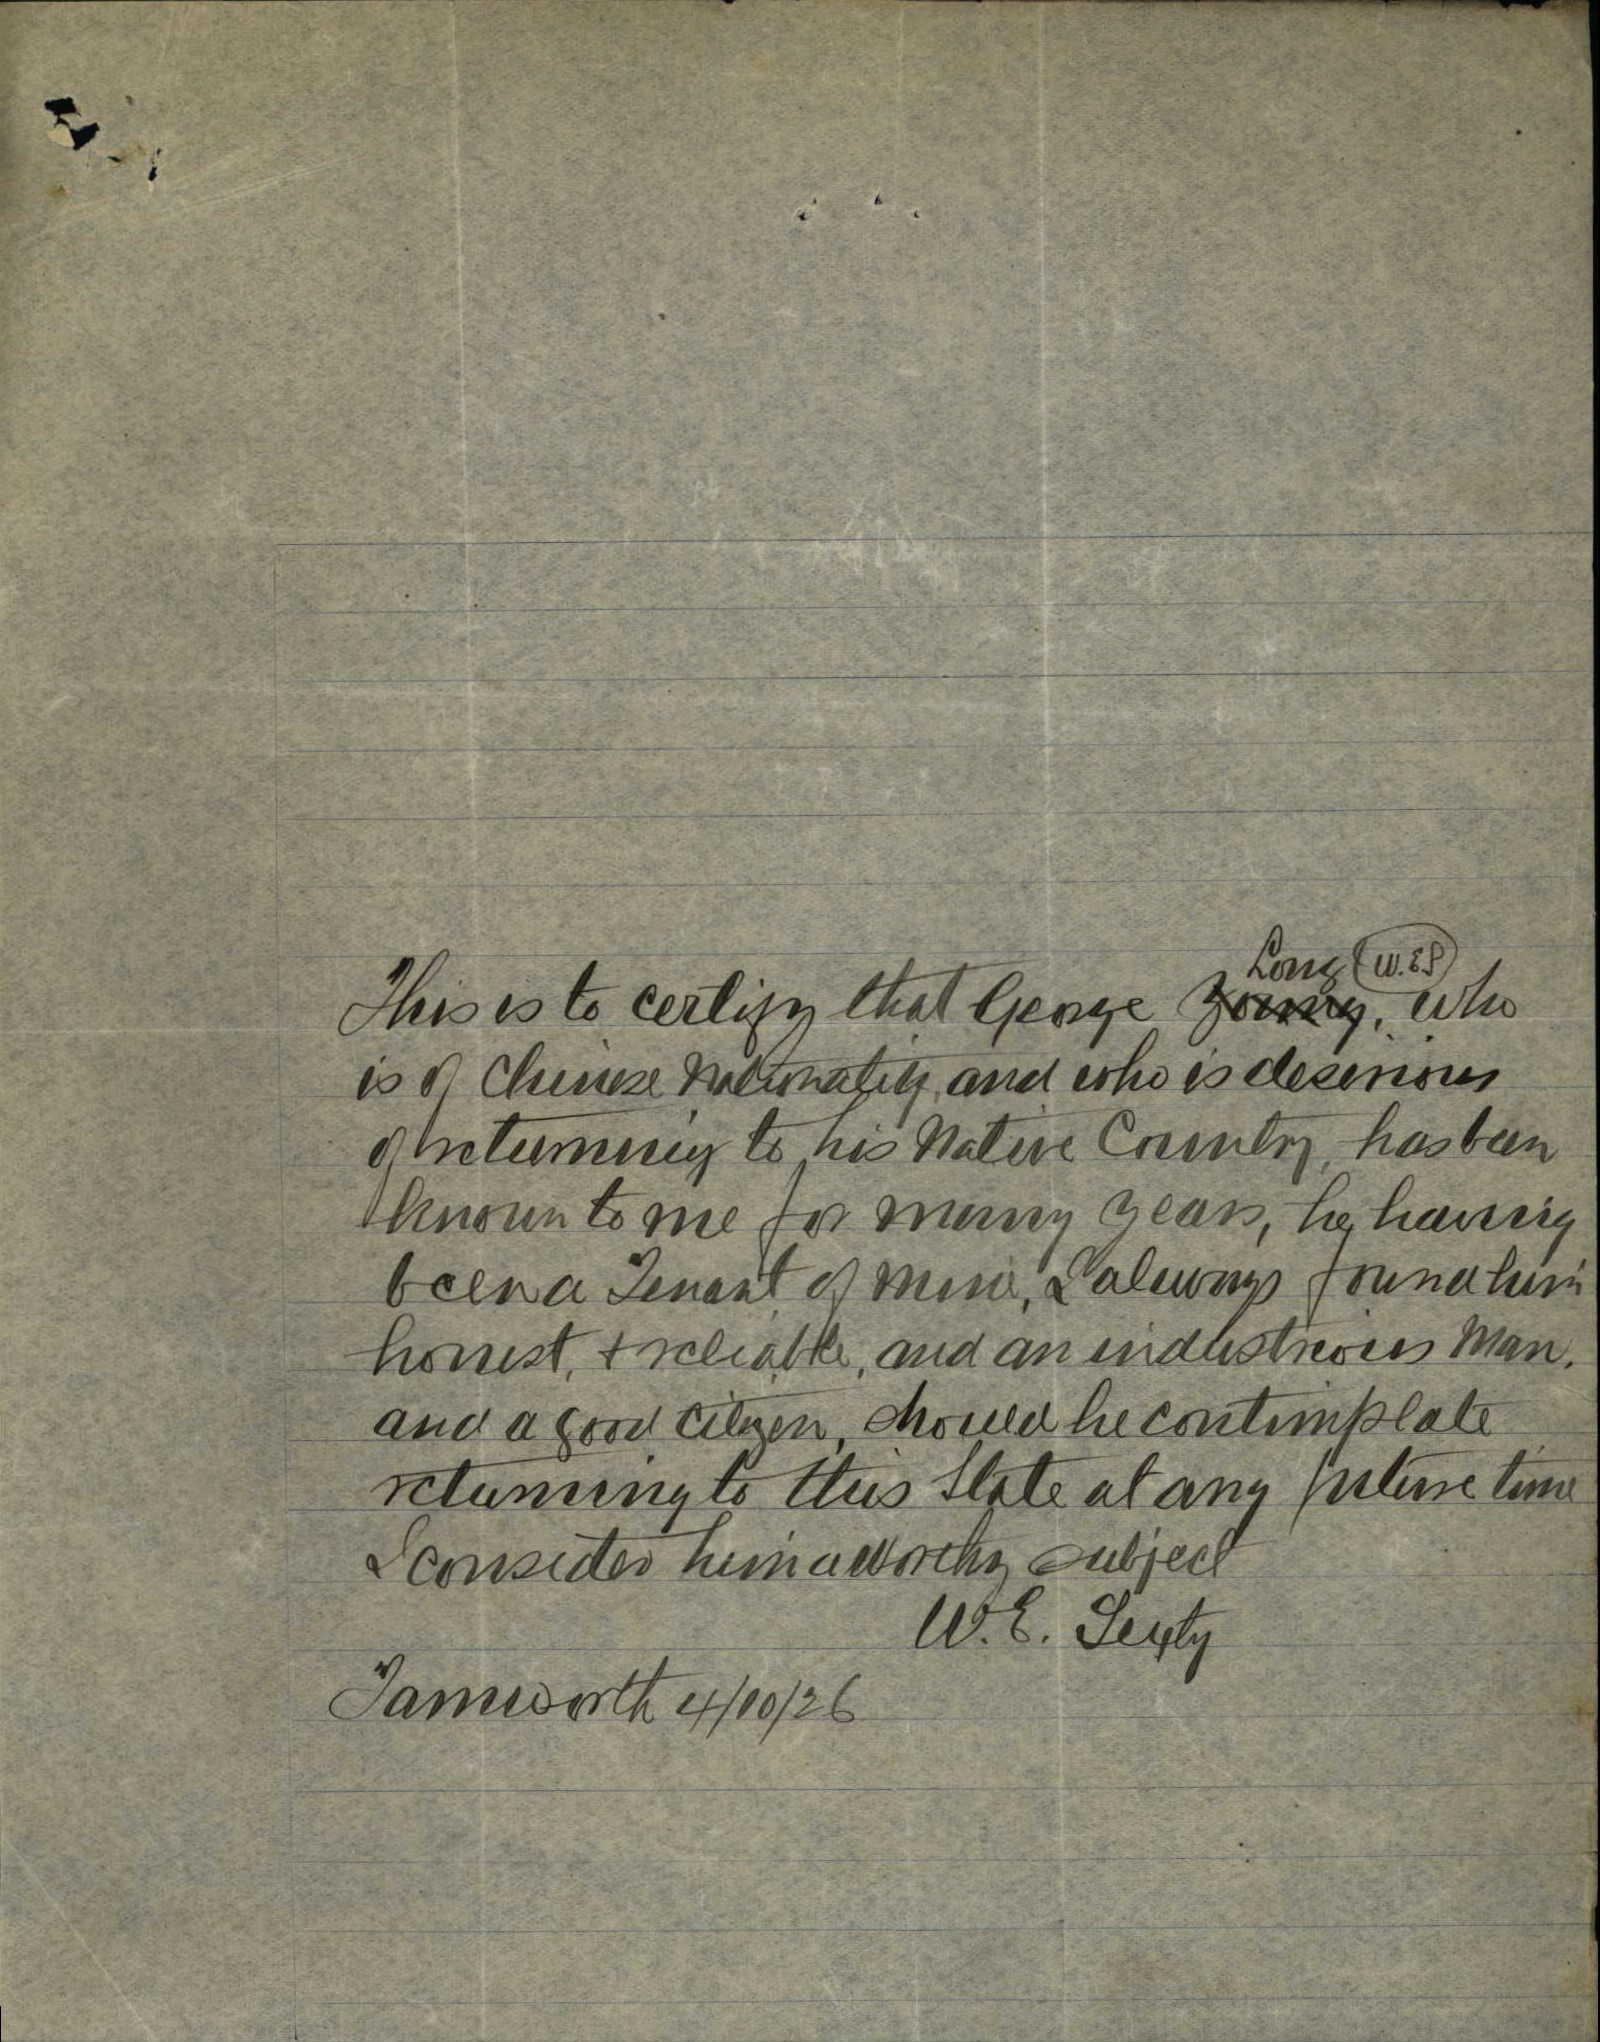 Long W.E.S
This is to certify that George Young, who
is of Chinese Nationality, and who is desirious
of returning to his Native Country, has been
known to me for many years, he having
been a Tenant of mine, I always found him
honest, + reliable, and an industrious Man.
and a good citizen, should he contimplate
returning to this State at any future time
I consider him a worthy subject
W.E. Sexty
Tamworth 4/10/26